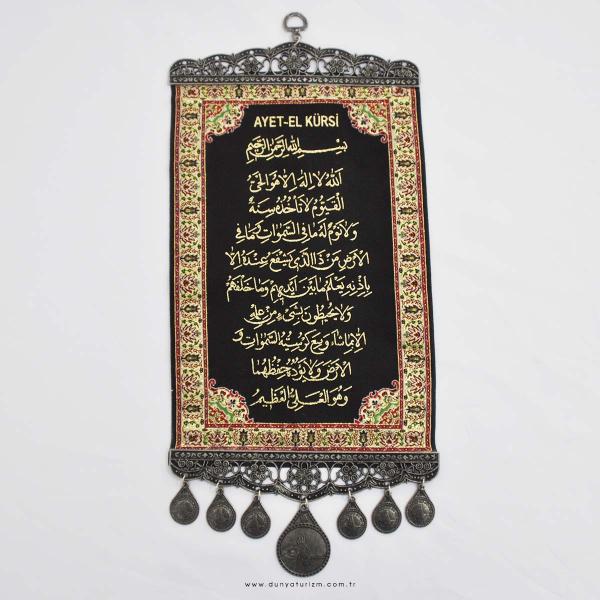 AYET-EL KÜRSİ
بسم الله الرحمن الرحيم
الله لا اله الا هو الحي
القيوم لا تأخذه سنة
ولا نوم له ما في السموات وما في
الارض من ذا الذي يشفع عنده الا
باذنه يعلم ما بين ايديهم وما خلفهم
ولا يحيطون بشيء من علمه
الا بما شاء وسع كرسيه السموات و
الارض ولا يؤده حفظهما
وهو العلي العظيم
www.dunyaturizm.com.tr